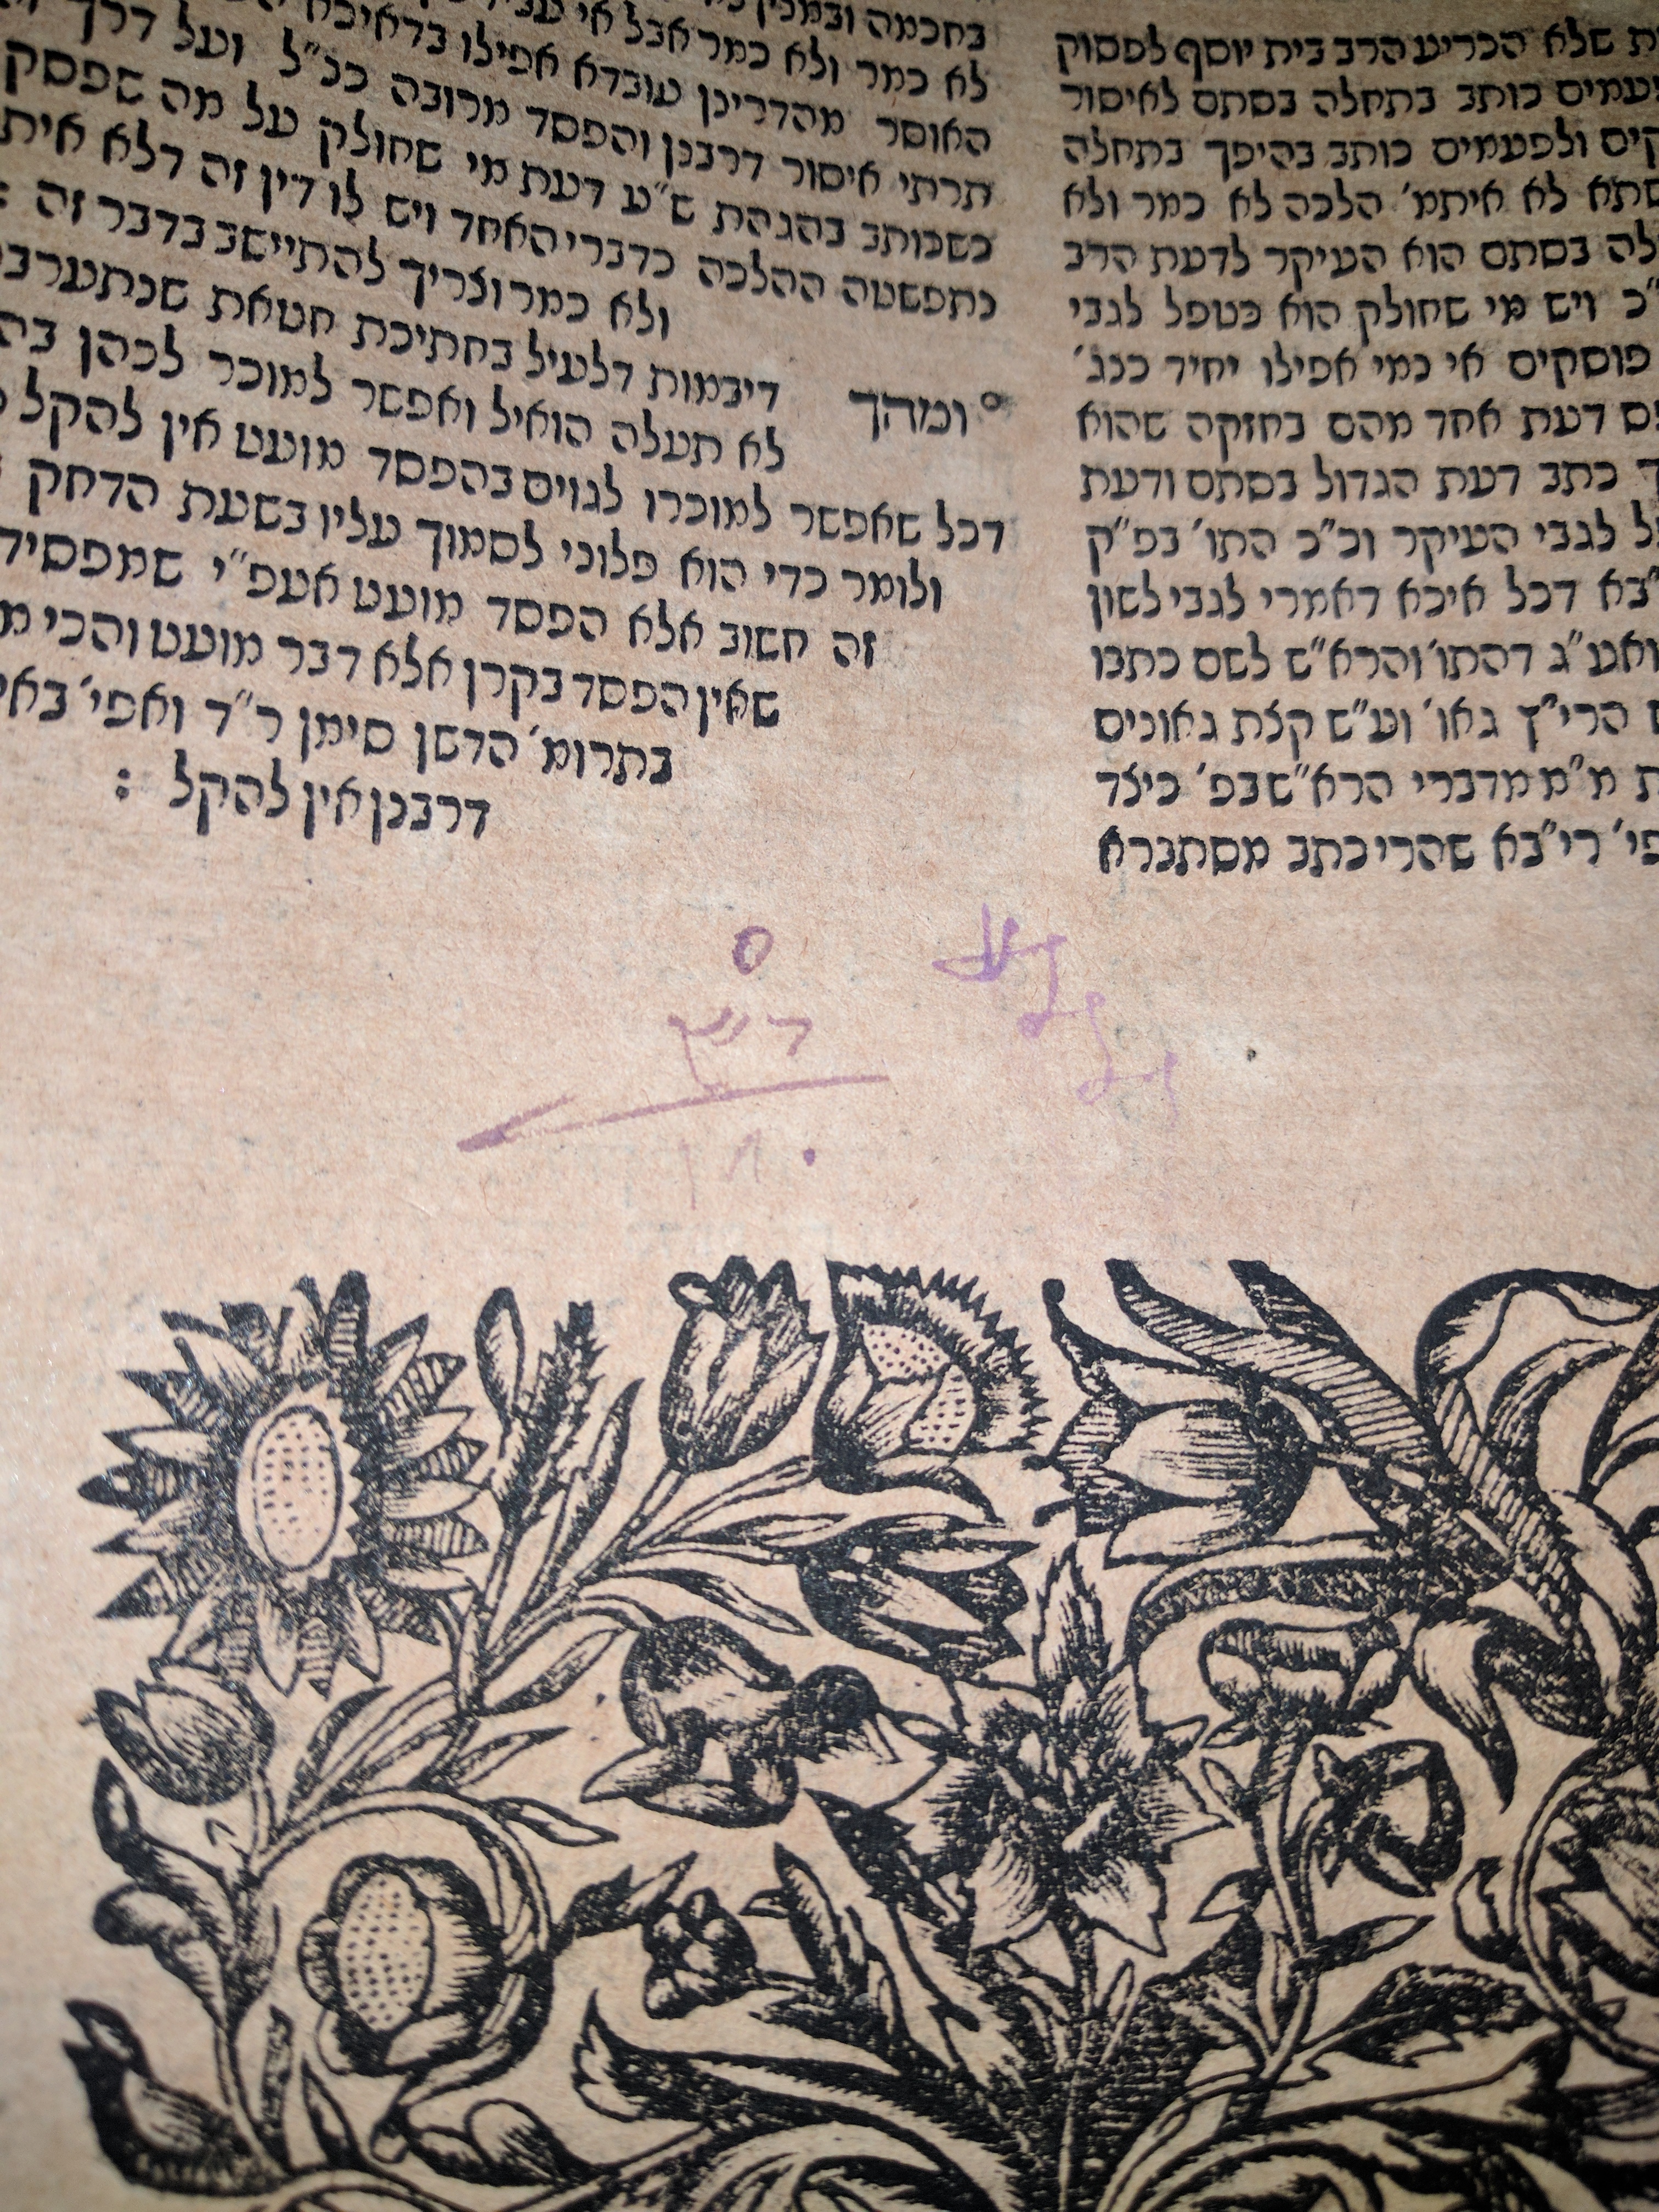 ת שלא הכריע הרב בית יוסף לפסוק
עמים כותב בתחלה בסתם לאיסור
קים ולפעמים כותב בהיפך בתחלה
שתא לא איתמ' הלכה לא כמר ולא
לה בסתם הוא העיקר לדעת הרב
"כ ויש מי שחולק הוא כטפל לגבי
פוסקים אי נמי אפילו יחיד כנג'
פס דעת אחד מהם בחזקה שהוא
ך כתב דעת הגדול בסתם ודעת
ל לגבי העיקר וכ"כ התו' בפ"ק
"בא דכל איכא דאמרי לגבי לשון
ואע"ג דהתו' והרא"ש לשם כתבו
הרי"ץ גאו' וע"ש קצת גאונים
ת מ"מ מדברי הרא"ש בפ' כיצד
פי' רי"בא שהרי כתב מסתברא
בחכמה ובמנין
לא כמר ולא כמר אבל אי
האוסר מהדרינן עובדא אפילו בדאיכא
תרתי איסור דרבנן והפסד מרובה כנ"ל ועל דרך
כשכותב בהגהת ש"ע דעת מי שחולק על מה שפסק
נתפשטה ההלכה כדברי האחד ויש לו דין זה דלא אית
ולא כמר וצריך להתיישב בדבר זה :
ומהך
דיבמות דלעיל בחתיכת חטאת שנתערב
לא תעלה הואיל ואפשר למוכר לכהן
דכל שאפשר למוכרו לגוים בהפסד מועט אין להקל
ולומר כדי הוא פלוני לסמוך עליו בשעת הדחק
זה חשוב אלא הפסד מועט אעפ"י שמפסיד
שאין הפסד בקרן אלא דבר מועט והכי
בתרומ' הדשן סימן ר"ד ואפי'
דרבנן אין להקל :